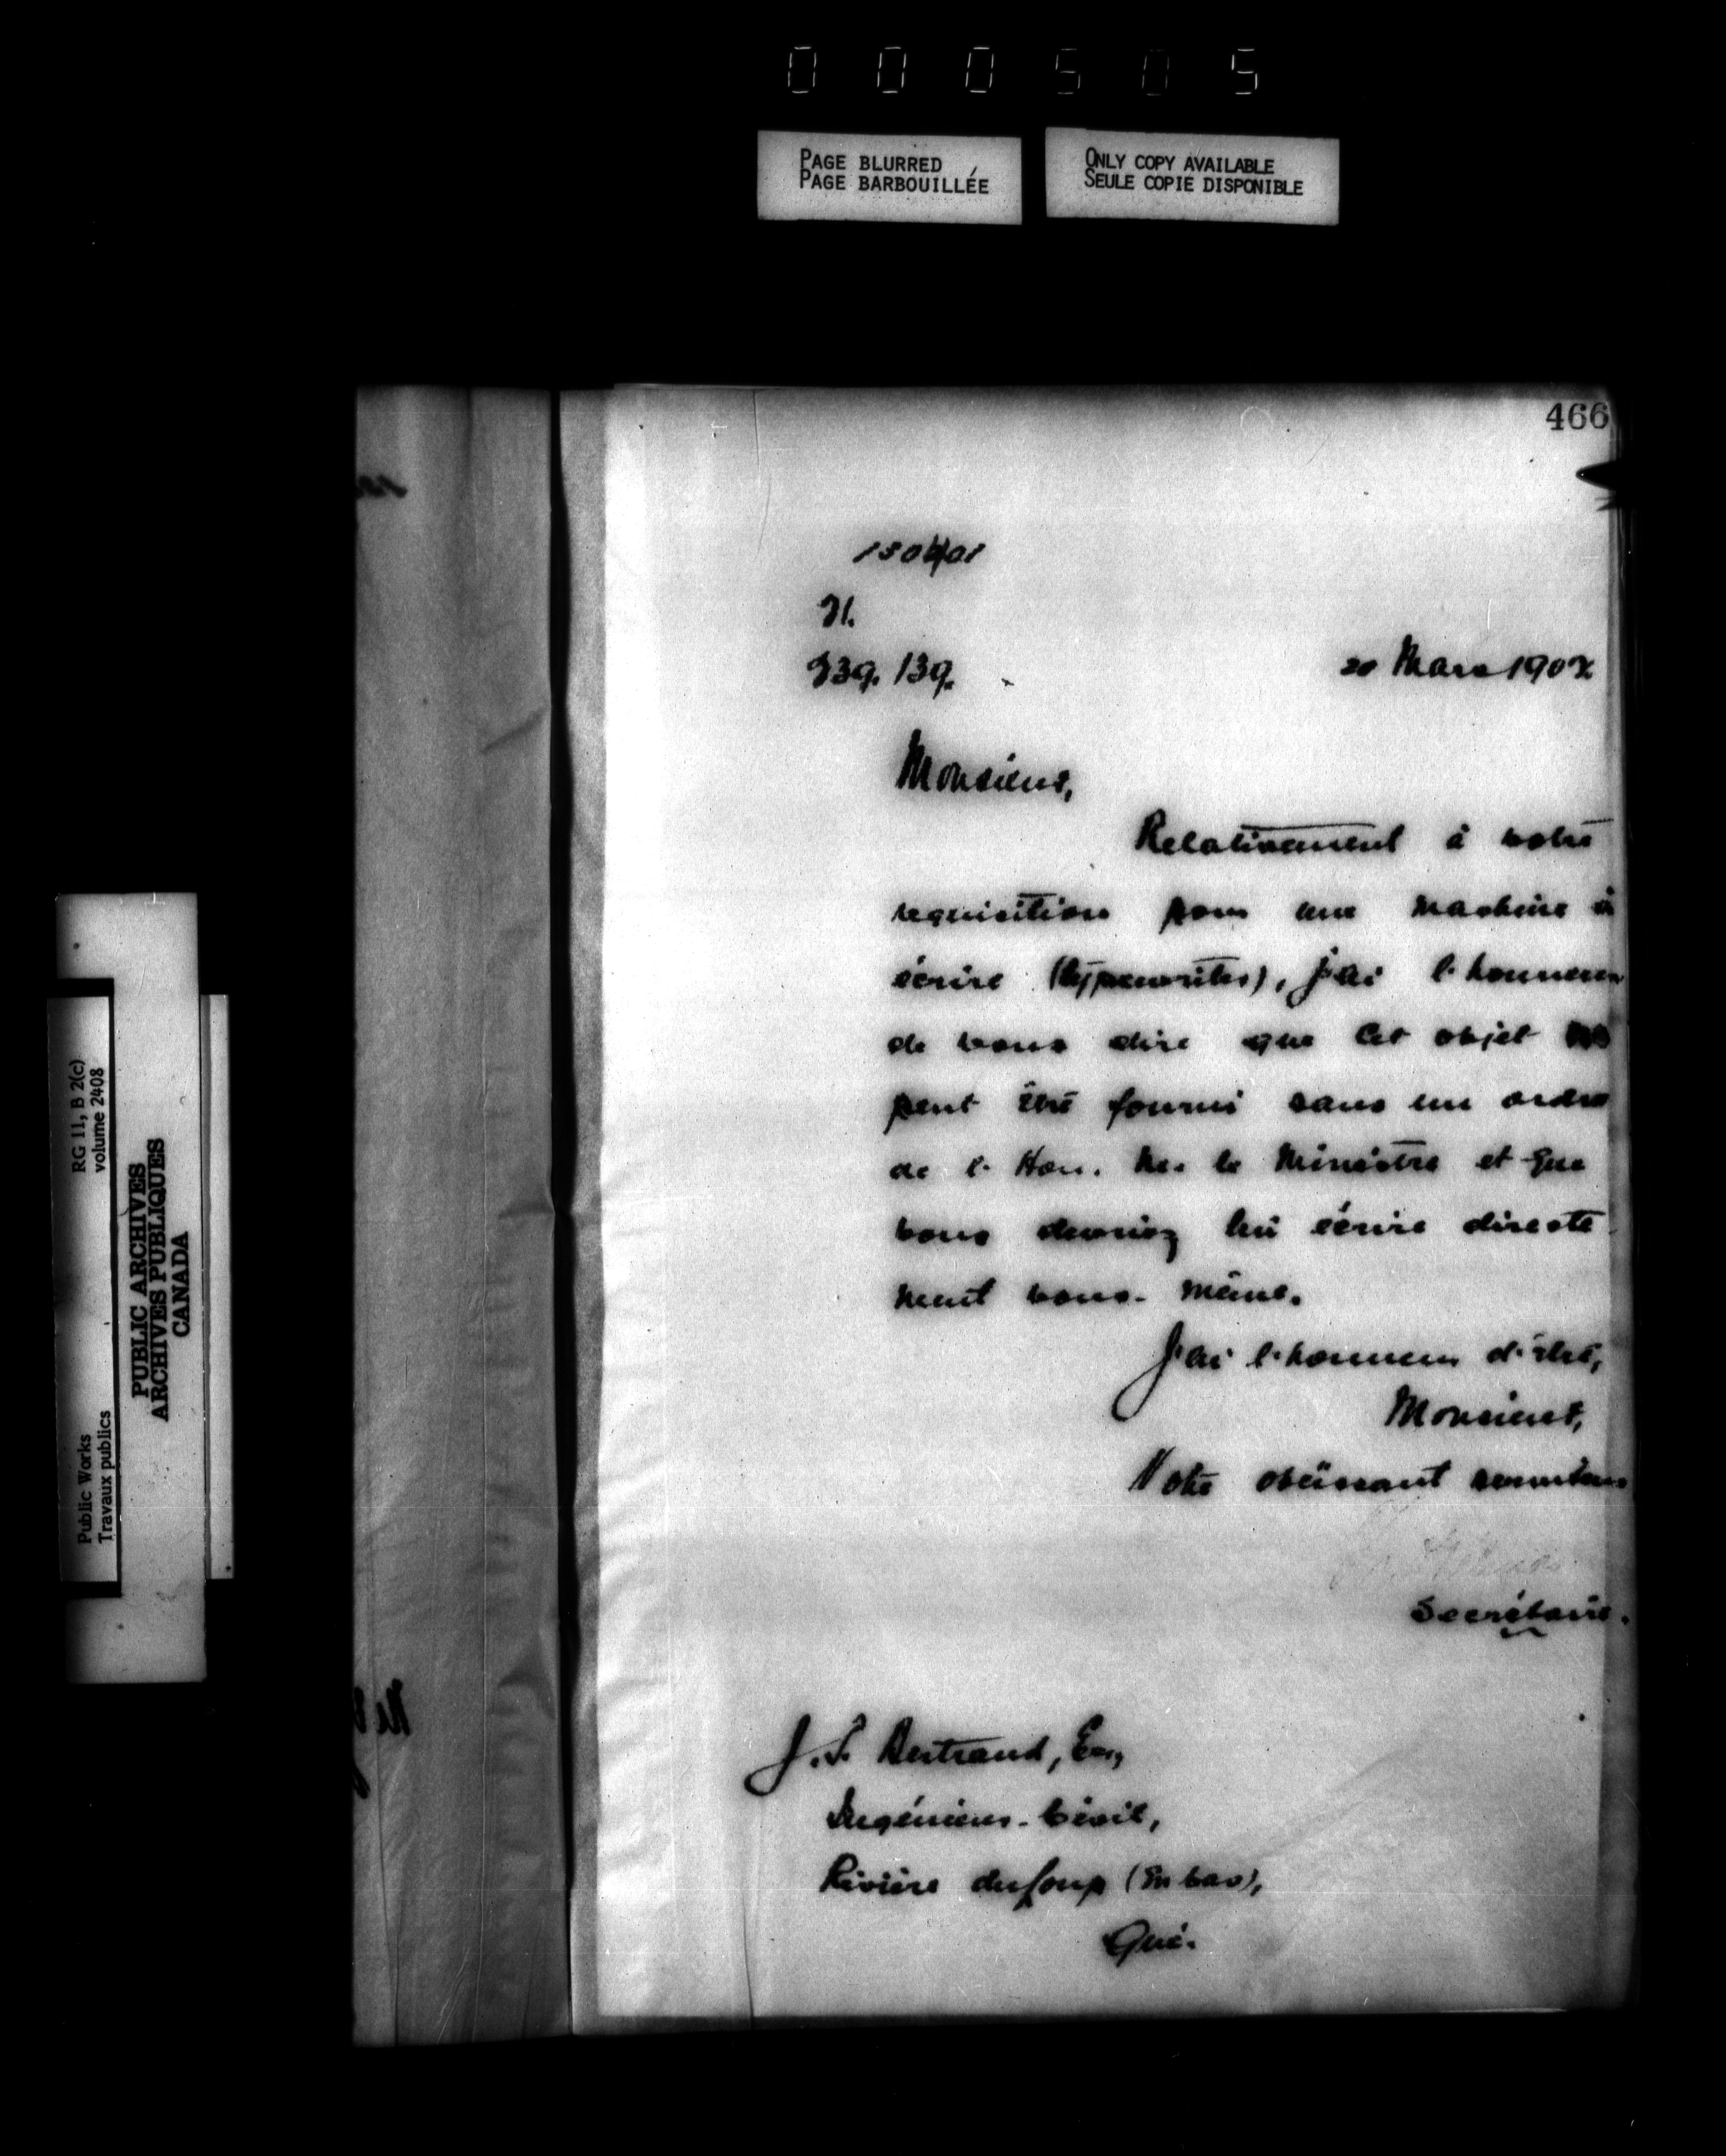 000505
PAGE BLURRED
PAGE BARBOUILLÉE
ONLY COPY AVAILABLE
SEULE COPIE DISPONIBLE
466
20 Mars 1902
Monsieur,
Relativement à votre
requisition pour une machine à
écrire (typewriter), j'ai l'honneur
de vous dire que cet objet ne
peut être fourni sans un ordre
de l'Hon. M. le Ministre et que
vous devriez lui écrire directe-
ment vous-même.
J'ai l'honneur d'être,
Monsieur,
Votre obéissant serviteur
Secrétaire.
Bertrand, Esq,
Ingénieur-Civil,
Rivière du Loup (en bas),
Qué.
RG 11, B 2(c)
volume 2408
PUBLIC ARCHIVES
ARCHIVES PUBLIQUES
CANADA
Public Works
Travaux publics